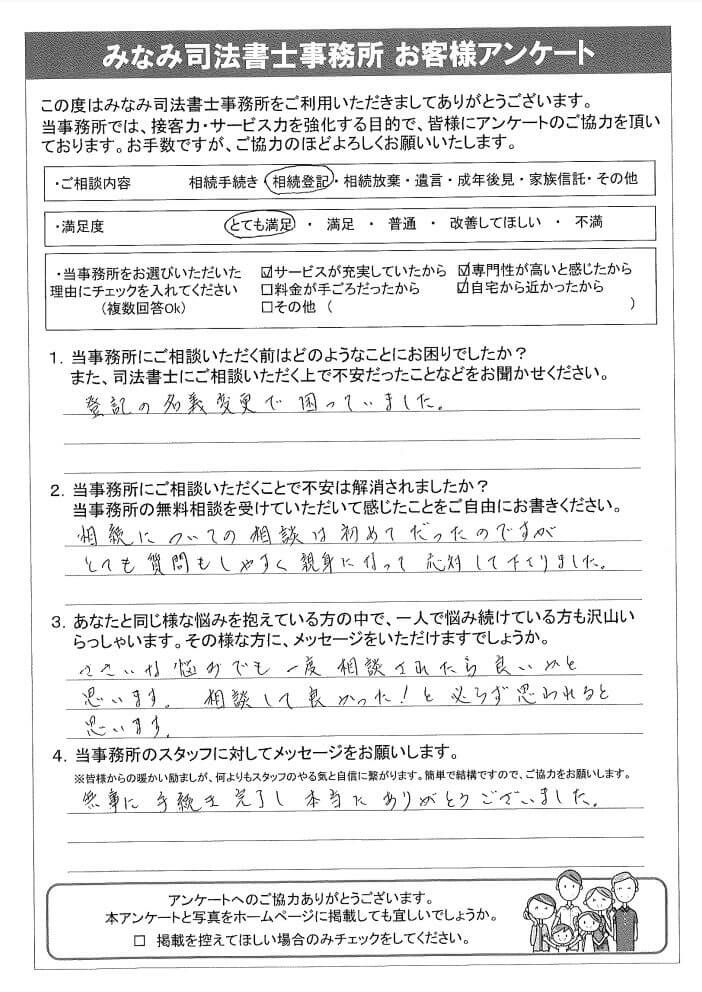 みなみ司法書士事務所 お客様アンケート
この度はみなみ司法書士事務所をご利用いただきましてありがとうございます。
当事務所では、接客力・サービス力を強化する目的で、皆様にアンケートのご協力を頂い
ております。お手数ですが、ご協力のほどよろしくお願いいたします。
・ご相談内容 相続手続き・相続登記・相続放棄・遺言・成年後見・家族信託・その他
・満足度 とても満足 ・ 満足 ・ 普通 ・ 改善してほしい ・ 不満
・当事務所をお選びいただいた ☑サービスが充実していたから ☑専門性が高いと感じたから
理由にチェックを入れてください □料金が手ごろだったから ☑自宅から近かったから
(複数回答Ok) □その他 ( )
1. 当事務所にご相談いただく前はどのようなことにお困りでしたか?
また、司法書士にご相談いただく上で不安だったことなどをお聞かせください。
登記の名義変更で困っていました。
2. 当事務所にご相談いただくことで不安は解消されましたか?
当事務所の無料相談を受けていただいて感じたことをご自由にお書きください。
相続についての相談は初めてだったのですが
とても質問もしやすく親身になって応対して下さりました。
3. あなたと同じ様な悩みを抱えている方の中で、一人で悩み続けている方も沢山い
らっしゃいます。その様な方に、メッセージをいただけますでしょうか。
ささいな悩みでも一度相談されたら良いかと
思います。 相談して良かった!と必らず思われると
思います。
4. 当事務所のスタッフに対してメッセージをお願いします。
※皆様からの暖かい励ましが、何よりもスタッフのやる気と自信に繋がります。簡単で結構ですので、ご協力をお願いします。
無事に手続き完了し本当にありがとうございました。
アンケートへのご協力ありがとうございます。
本アンケートと写真をホームページに掲載しても宜しいでしょうか。
□ 掲載を控えてほしい場合のみチェックをしてください。